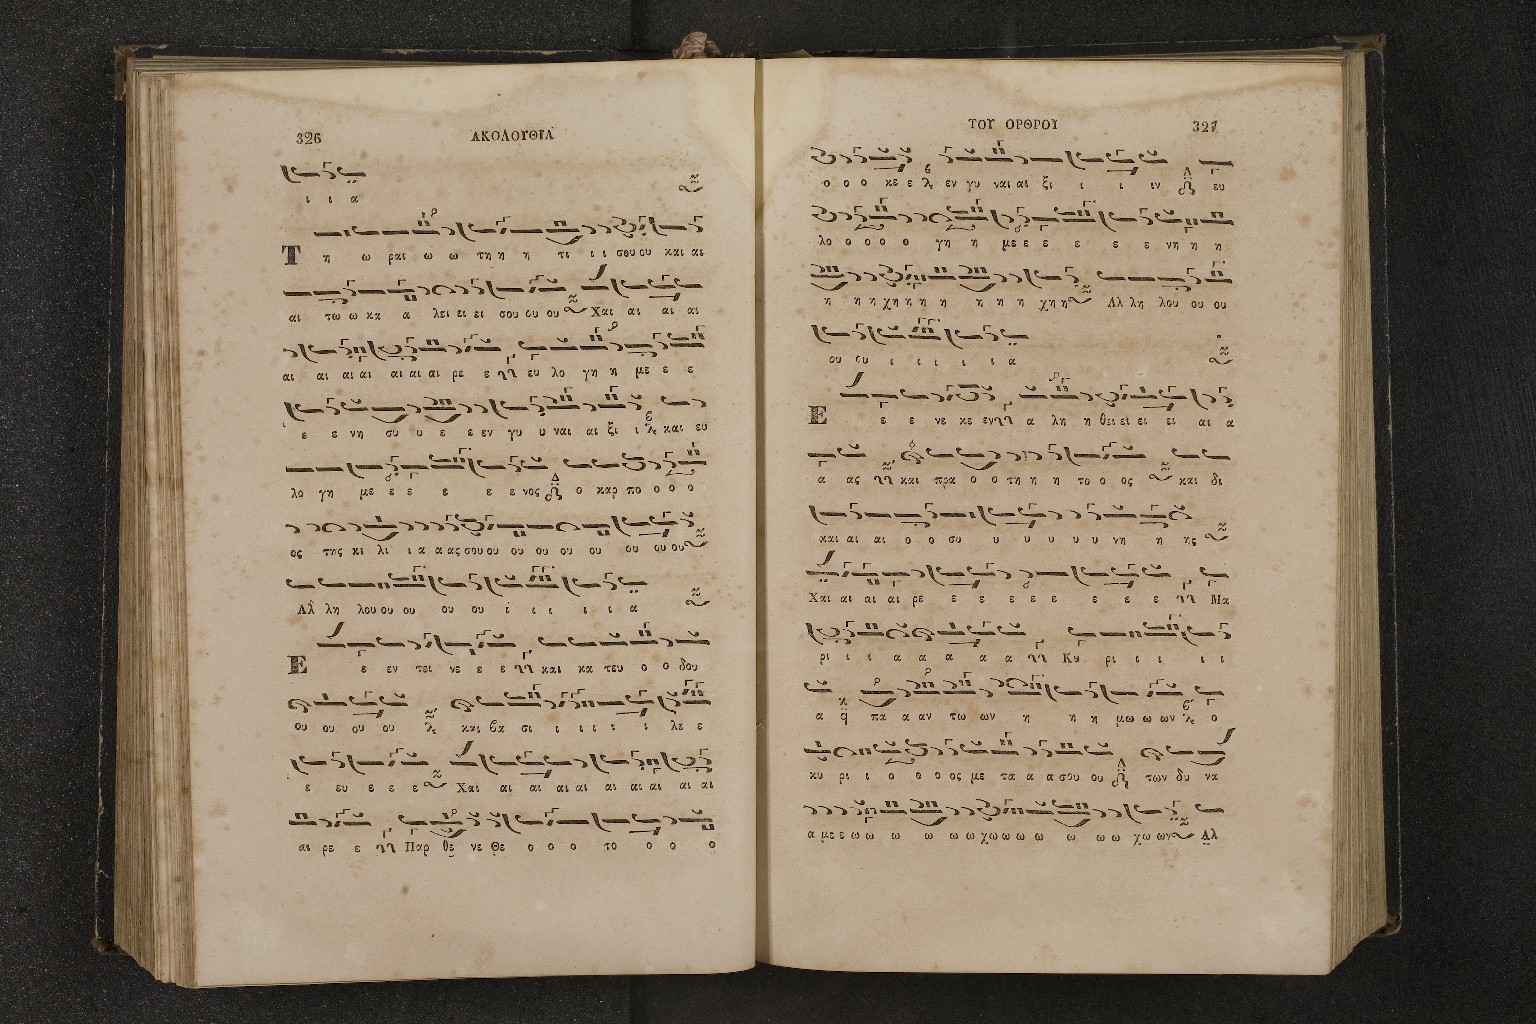 326
ΑΚΟΛΟΥΘΙΑ
ι ι α
Τ η ω ραι ω ω τη η η τι ι ι σου ου και αι
αι τω ω κα α λει ει ει σου ου ου Χαι αι αι αι
αι αι αι αι αι αι αι ρε ε ευ λο γη η με ε ε
ε ε νη συ υ ε ε εν γυ υ ναι αι ξι ι και ευ
λο γη με ε ε ε ε ε νος ο καρ πο ο ο ο
ος της κι λι ι α α ας σου ου ου ου ου ου ου ου ου
Αλ λη λου ου ου ου ου ι ι ι ι ι α
Ε ε εν τει νε ε ε και κα τευ ο ο δου
ου ου ου ου και βα σι ι ι ι ι ι λε ε
ε ευ ε ε ε Χαι αι αι αι αι αι αι αι αι
αι ρε ε Παρ θε νε Θε ο ο ο το ο ο ο
ΤΟΥ ΟΡΘΡΟΥ
327
ο ο ο κε ε εν γυ ναι αι ξι ι ι ιν ευ
λο ο ο ο ο γη η με ε ε ε ε ε νη η η
η η η χη η η η η η η χη η Αλ λη λου ου ου
ου ου ι ι ι ι ι α
Ε ε ε νε κε εν α λη η θει ει ει ει αι α
α ας και πρα ο ο τη η η το ο ος και δι
και αι αι ο ο συ υ υ υ υ υ νη η ης
Χαι αι αι αι ρε ε ε ε ε ε ε ε ε Μα
ρι ι ι α α α α α Κυ ρι ι ι ι ι
α πα α αν τω ων η η η μω ω ων ο
κυ ρι ι ο ο ο ος με τα α α σου ου των δυ να
α με ε ω ω ω ω ω ω χω ω ω ω ω ω ω χω ων Αλ